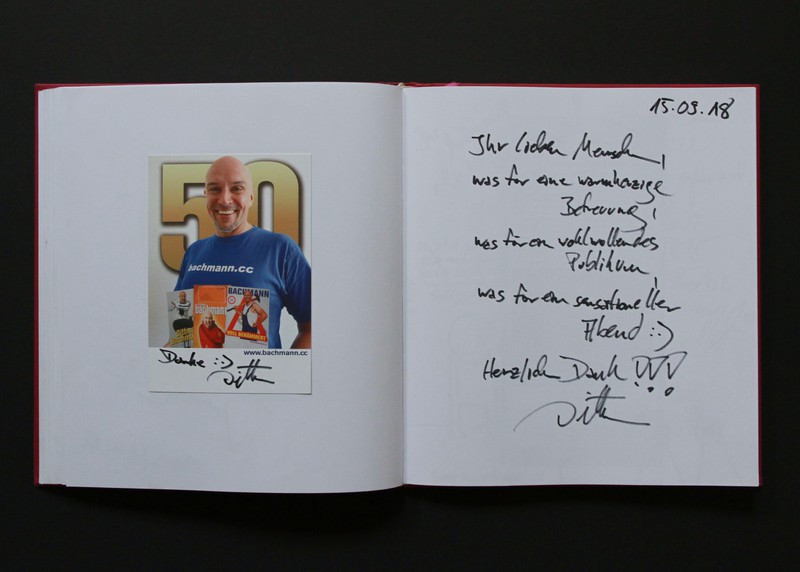 50
bachmann.cc
bachmann
BACHMANN
www.bachmann.cc
Danke :-)
15.09.18
Ihr lieben Menschen,
was für eine warmherzige
Betreuung,
was für ein wohlwollendes
Publikum,
was für ein sensationeller
Abend :-)
Herzlichen Dank !!!